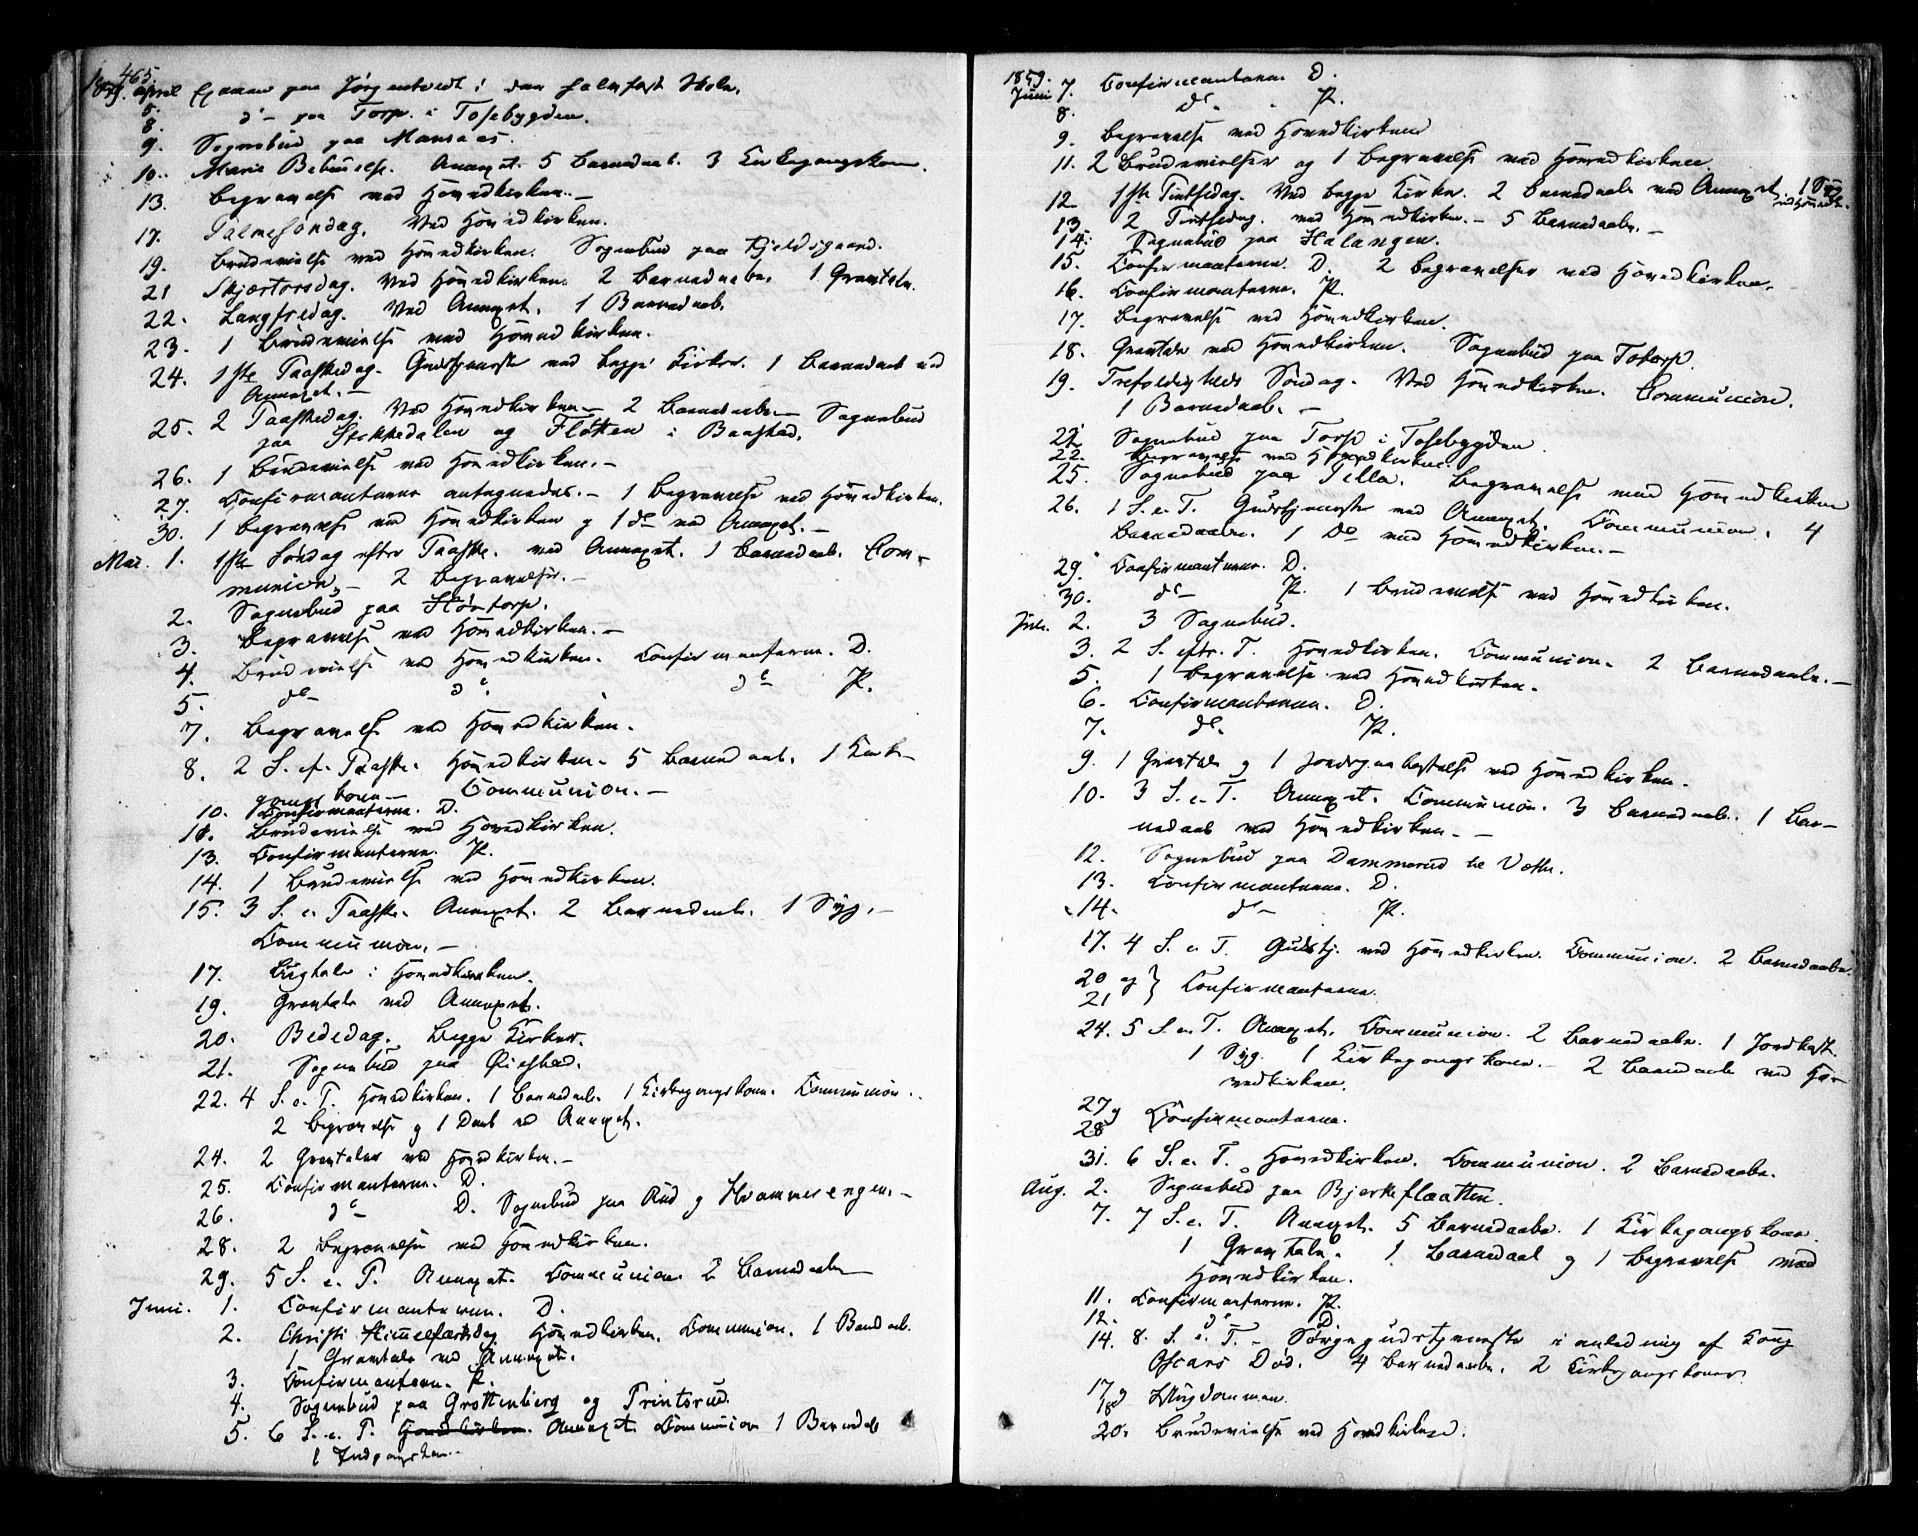 465.
1859. April
5. Examen paa Jørgentvedt i den halvfaste Skole.
8. do paa Torp i Tosebygden.
9. Sognebud paa Mansaas.
10. Mariæ Bebudelse. Annexet. 5 Barnedaab. 3 Kirkegangskoner.
13. Begravelse ved Hovedkirken. —
17. Palmesøndag. Ved Hovedkirken.
19. Brudevielse ved Hovedkirken. Sognebud paa Kjeldsgaard.
21 Skjærtorsdag. Ved Hovedkirken. 2 Barnedaabe. 1 Gravtale.
22. Langfredag. Ved Annexet. 1 Barnedaab.
23. 1 Brudevielse ved Hovedkirken.
24. 1ste Paaskedag. Gudstjeneste ved begge Kirker. 1 Barnedaab ved
Annexet. —
25. 2 Paaskedag. Ved Hovedkirken — 2 Barnedaabe — Sognebud
paa Stokkedalen og Fløtten i Baastad.
26. 1 Brudevielse ved Hovedkirken. —
27. Confirmanterne antegnedes. — 1 Begravelse ved Hovedkirken.
30. 1 Begravelse ved Hovedkirken og 1 do ved Annexet. —
Mai. 1. 1ste Søndag efter Paaske. ved Annexet. 1 Barnedaab. Com-
munion. — 2 Begravelser. —
2. Sognebud paa Hørtorp.
3. Begravelse ved Hovedkirken. —
4. Brudevielse ved Hovedkirken. Confirmanterne. D.
5. do do do P.
7. Begravelse ved Hovedkirken.
8. 2 S. ef. Paaske. Hovedkirken. 5 Barnedaab. 1 Kirke-
gangskone — Communion. —
10. Confirmanterne. D.
11. Brudevielse ved Hovedkirken.
13. Confirmanterne. P.
14. 1 Brudevielse ved Hovedkirken.
15. 3 S. e. Paaske. Annexet. 2 Barnedaab. 1 Syg. —
Communion. —
17. Ligtale i Hovedkirken.
19. Gravtale ved Annexet.
20. Bededag. Begge Kirker.
21. Sognebud paa Øiestad.
22. 4 S. e. P. Hovedkirken. 1 Barnedaab. 1 Kirkegangskone. Communion.
2 Begravelse og 1 Daab ved Annexet.
24. 2 Gravtaler ved Hovedkirken. —
25. Confirmanterne. D.
26. do D. Sognebud paa Rud og Hvammerengen. —
28. 2 Begravelser ved Hovedkirken.
29. 5 S. e. P. Annexet. Communion. 2 Barnedaabe
Juni. 1. Confirmanterne. D.
2. Christi Himmelfartsdag Hovedkirken. Communion. 1 Barnedaab.
1 Gravtale ved Annexet.
3. Confirmanterne. P.
4. Sognebud paa Grottenberg og Printsrud.
5. 6 S. e. P. Hovedkirken. Annexet Communion 1 Barnedaab
1 Indgangskone.
1859.
Juni 7. Confirmanterne D.
8. do P.
9. Begravelse ved Hovedkirken
11. 2 Brudevielser og 1 Begravelse ved Hovedkirken
12 1ste Pintsedag. Ved begge Kirker. 2 Barnedaabe ved Annexet. 1 Syg
ved Hovedk.
13 2 Pintsedag. ved Hovedkirken. — 5 Barnedaabe. —
14. Sognebud paa Halangen.
15. Confirmanterne. D. 2 Begravelser ved Hovedkirken.
16. Confirmanterne. P.
17. Begravelse ved Hovedkirken.
18. Gravtale ved Hovedkirken. Sognebud paa Totorp.
19. Trefoldigheds Søndag. Ved Hovedkirken. Communion.
1 Barnedaab. —
21 Sognebud paa Torp i Tosebygden
22. Begravelse ved Hovedkirken.
25. Sognebud paa Tella. Begravelse ved Hovedkirken
26. 1 S. e. T. Gudstjeneste ved Annexet. Communion. 4
Barnedaabe. 1 Do ved Hovedkirken. —
29. Confirmanterne. D.
30. do P. 1 Brudevielse ved Hovedkirken.
Juli. 2. 3 Sognebud.
3. 2 S. eftr. T. Hovedkirken. Communion. 2 Barnedaabe. —
5. 1 Begravelse ved Hovedkirken.
6. Confirmanterne. D.
7. do P.
9. 1 Gravtale og 1 Jordspaakastelse ved Hovedkirken.
10. 3 S. e. T. Annexet. Communion. 3 Barnedaab. 1 Bar-
nedaab ved Hovedkirken. —
12. Sognebud paa Dammerud
13. Confirmanterne. D.
14. do P.
17. 4 S. e. T. Gudstj. ved Hovedkirken. Communion. 2 Barnedaabe.
20 og
21 } Confirmanterne.
24. 5 S. e. T. Annexet. Communion. 2 Barnedaabe. 1 Jordkast.
1 Syg. 1 Kirkegangskone. — 2 Barnedaabe ved Ho-
vedkirken.
27 og
28 Confirmanterne.
31. 6 S. e. T. Hovedkirken. Communion. 2 Barnedaabe.
Aug. 2. Sognebud paa Bjerkeflaatten.
7. 7 S. e. T. Annexet. 5 Barnedaabe. 1 Kirkegangskone.
1 Gravtale. 1 Barnedaab og 1 Begravelse ved
Hovedkirken.
11. Confirmanterne. P.
12. do D.
14. 8. S. e. T. — Sørgegudstjeneste i anledning af Kong
Oscars Død. 4 Barnedaabe. 2 Kirkegangskoner.
17 og
18 Ungdommen.
20. Brudevielse ved Hovedkirken.